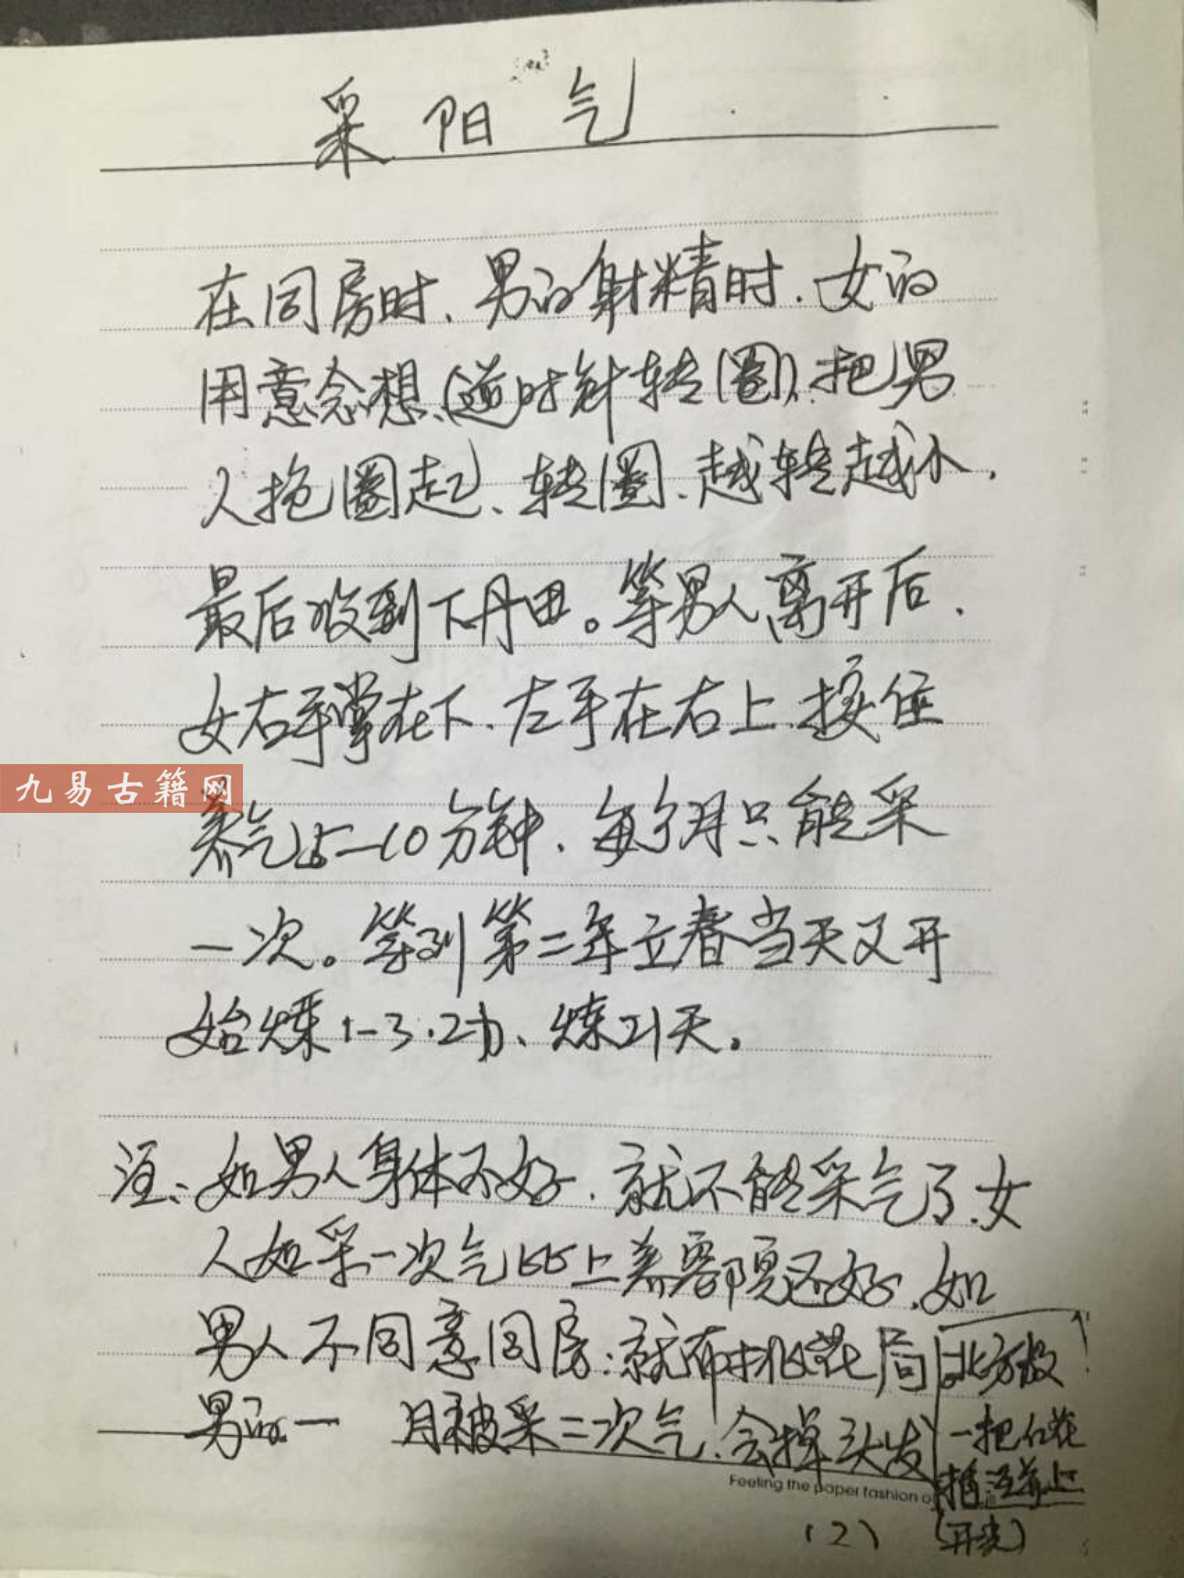 采阳气
在同房时、男的射精时、女的
用意念想、(逆时针转圈)、把男
人抱圈起、转圈、越转越小、
最后收到下丹田。等男人离开后、
女右手掌在下、左手在右上、按住
九易古籍网
养气15—10分钟、每个月只能采
一次。等到第二年立春当天又开
始炼1-3.2功、炼21天。
注、如男人身体不好、就不能采气了、女
人如采一次气比上美容院还好、如
男人不同意同房、就布桃花局
男的一 月被采二次气、会掉头发
北方放
一把红花
插 上
Feeling the paper fashion o
(2)
(开光)